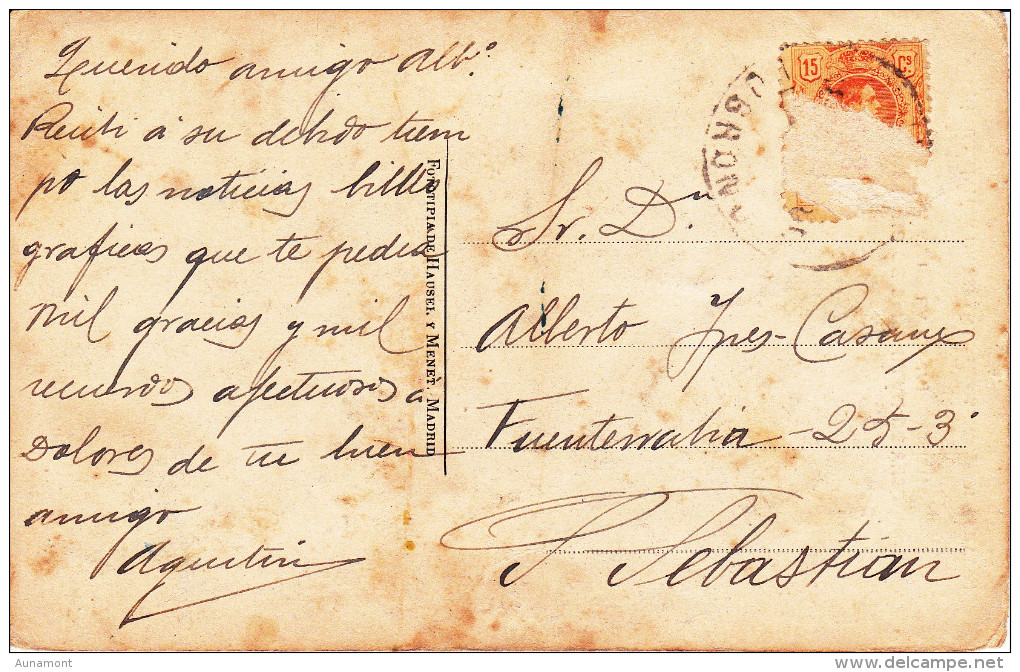 Querido amigo Alb.º
Recibi a su debido tiem
po las noticias billo
graficas que te pedia
Mil gracias y mil
recuerdos afectuosos a
Dolores de tu buen
amigo
Agustin
FOTOTIPIA DE HAUSER Y MENET. MADRID
15 Cs
Sr. Dn
Alberto Casaux
Fuenterrabia - 25 - 3º
S. Sebastian
Aunamont
delcampe.net